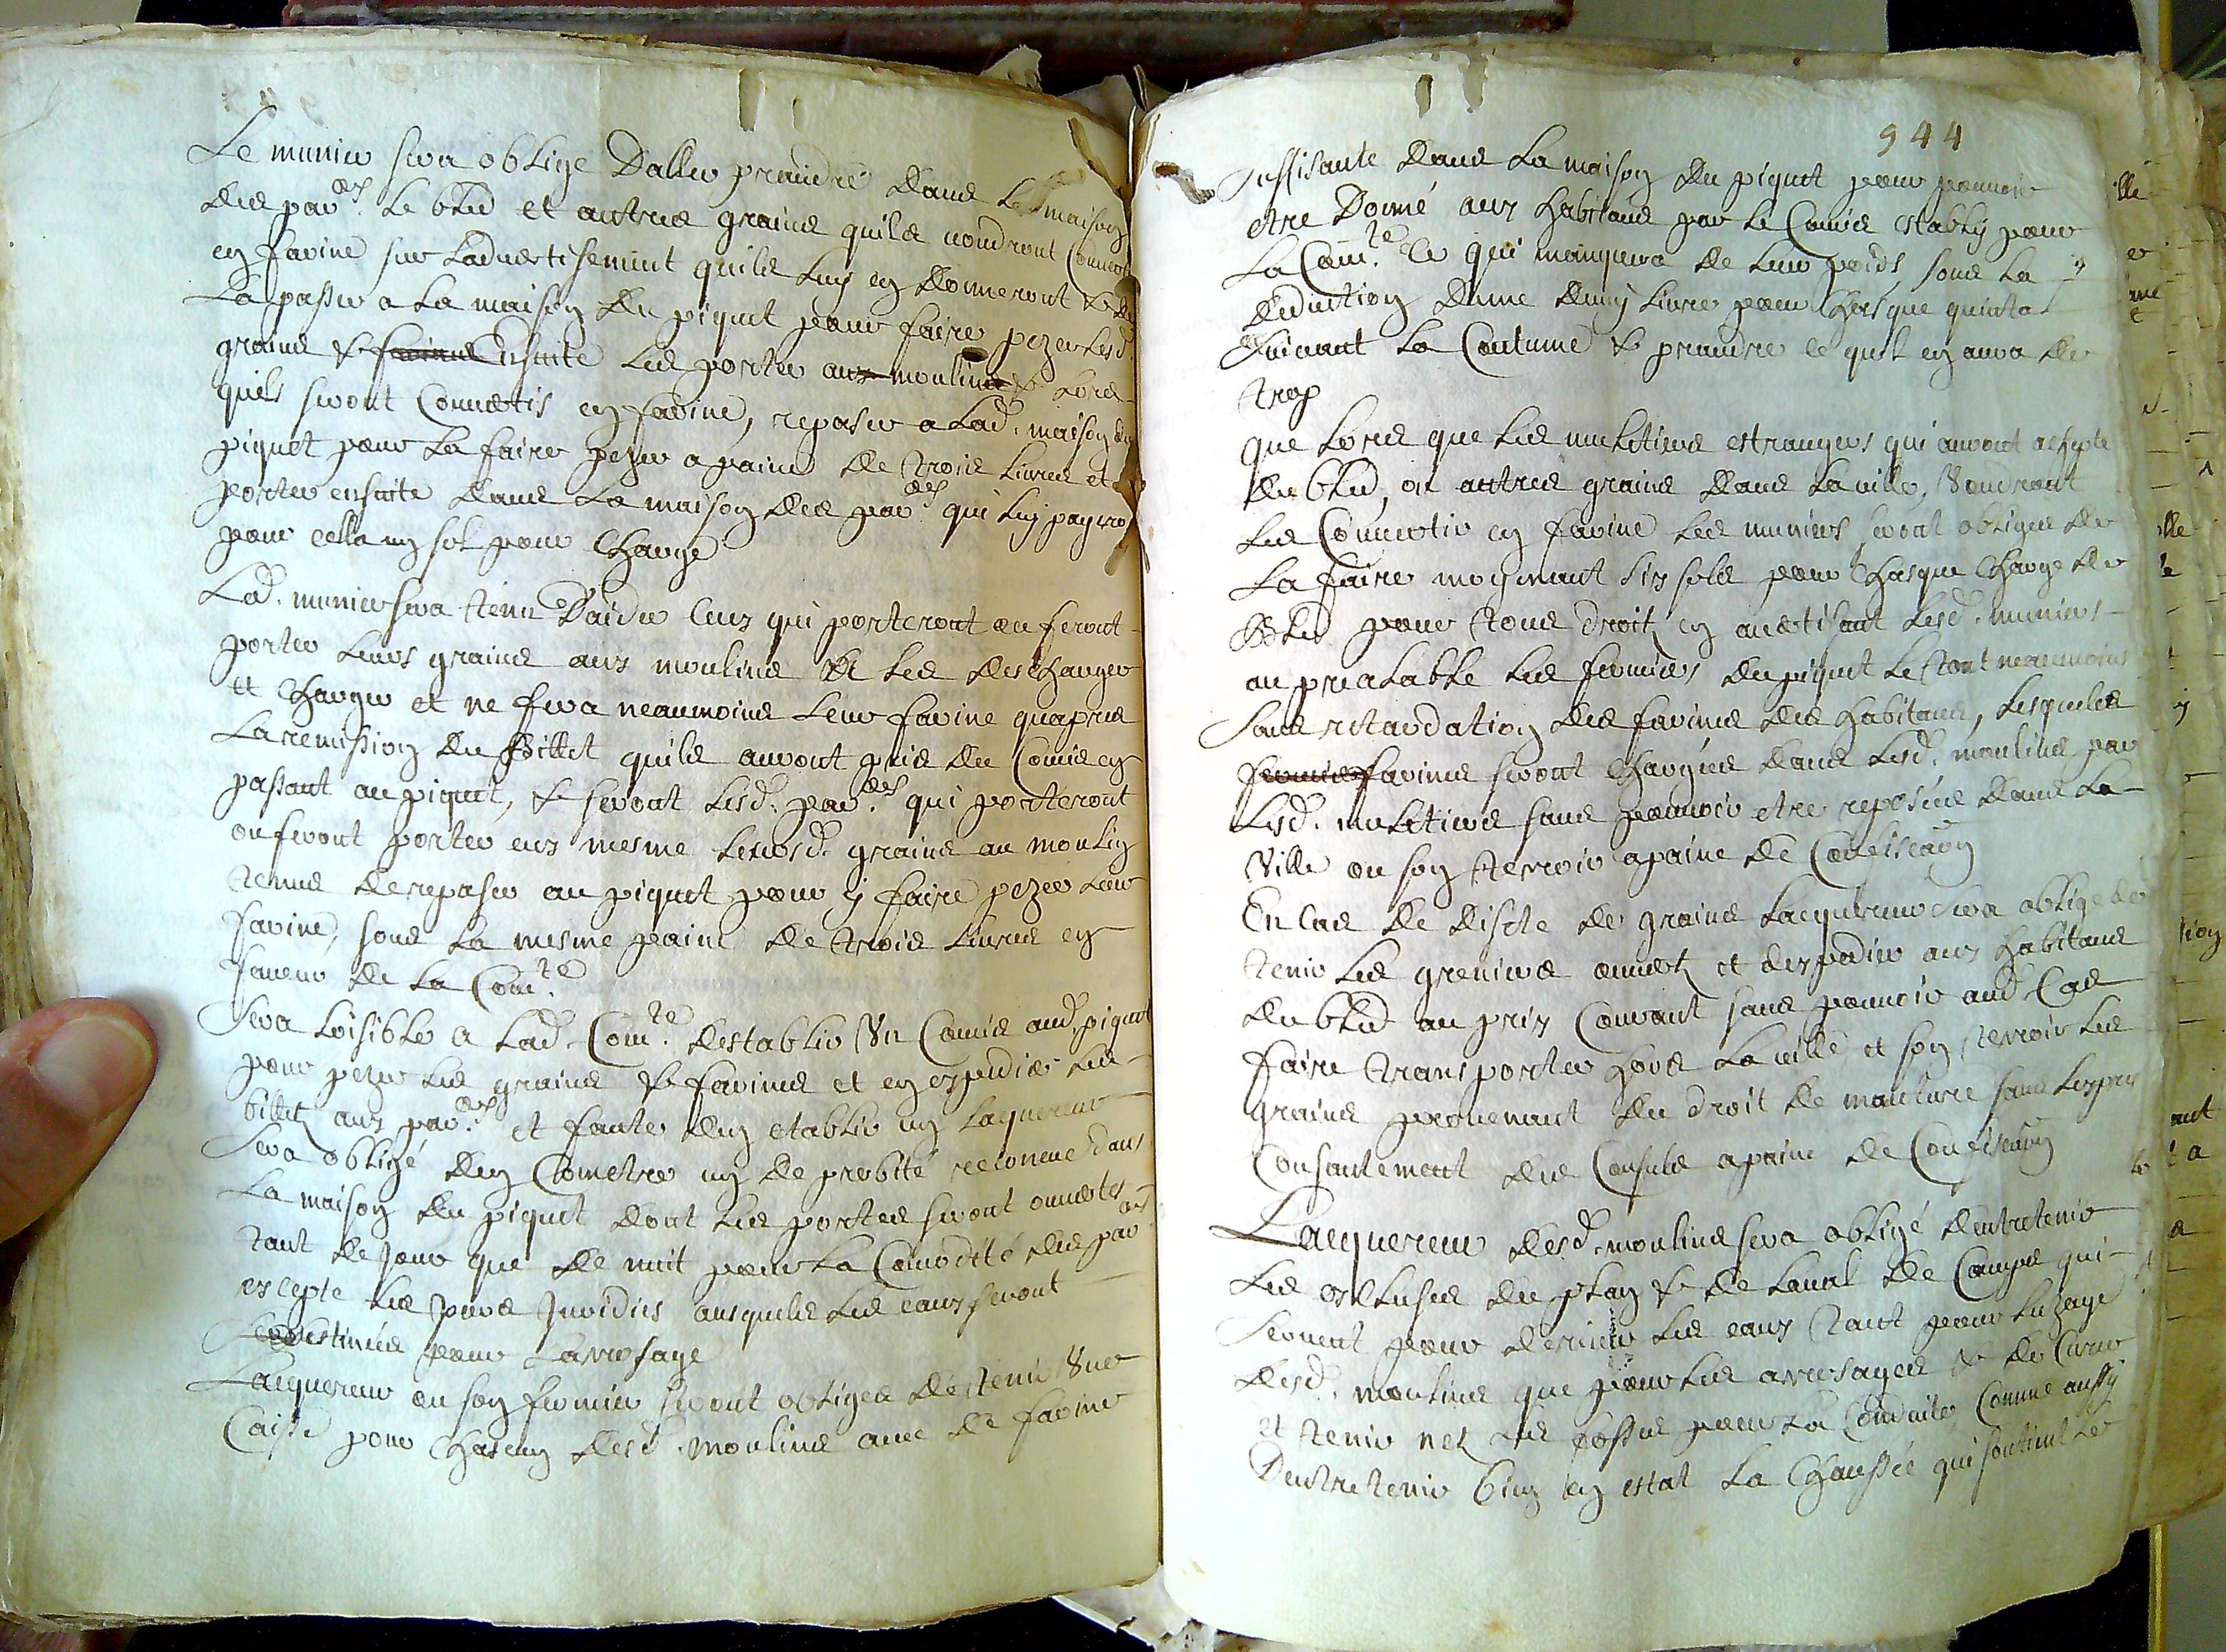 Le munier sera oblige Daller prandre dans Les maison
des par.ers Le bled et autres grains quils voudront Convert
en farine sur Laduertisement quils luy en donneront & de
La passer a La maison du piquet pour faire pezer Lesd.
grains & farines Ensuite Les porter aux moulins & Lors
quils seront Conuertis en farine, repasser a Lad. maison du
piquet pour La faire pezer a paine de trois Liures et
porter ensuite dans La maison des par.ers qui Luy payero
pour cella un sol pour Charge
Led. munier sera tenu D'aider Ceux qui porteront ou feront
porter Leurs grains aux moulins de Les descharger
et Charger et ne fera neaumoins Leur farine quapres
La remission du Billet quils auront pris du Comis en
passant au piquet, & seront Lesd. par.ers qui porteront
ou feront porter eux mesme Leursd. grains au moulin
tenus de repasser au piquet pour y faire pezer Leur
farine, sous La mesme paine de trois Liures en
faueur de La Com.te
Sera Loisible a Lad. Com.te destablir Un Comis aud. piquet
pour pezer Les grains & farines et en expedier Les
billetz aux par.ers et faute den etablir un Laquereur
Sera obligé den Cometre un de probité reconeue dans
La maison du piquet dont Les portes seront ouuertes
tant de Jour que de nuit pour La Comodité des par.ers
excepte Les Jours Juridics ausquels Les eaux seront
destinées pour Larrosage
Laquereur ou son fermier seront obliges de tenir Une
Caisse pour chascun desd. moulins auec de farine
944
suffisante dans La maison du piquet pour pouuoir
etre Donné aux habitans par Le Comis etably pour
La Com.te Ce qui manquera de Leur poids, sous La
deduction dune demy Liure pour Chasque quintal
suiuant La Coutume & prandre ce quil en aura de
trop
Que Lors que Les muletiers estrangers qui auront achepte
du bled, ou autres grains dans La ville, Voudront
Les Conuertir en farine Les muniers seront obliges de
La faire moyenant six sols pour Chasque Charge de
Bled pour tous droitz en auertisant Lesd. muniers
au prealable Les fermiers du piquet Le tout neaumoins
Sans retardation des farines des habitans, Lesquelles
farines seront Chargées dans Lesd. moulins par
Lesd. muletiers sans pouuoir etre reposées dans La
Ville ou son terroir a paine de Confiscaon
En Cas de disete de grains Laquereur sera oblige de
tenir Les greniers ouuertz et despedier aux habitans
du bled au prix Courant sans pouuoir aud. Cas
faire transporter hors La ville et son terroir Les
grains prouenant du droit de mouture sans Lexpres
Consantement des Consuls a paine de Confiscaon
Laquereur desd. moulins sera obligé dentretenir
Les escluses du plan & de Laual de Camps qui
seruent pour deriuer Les eaux tant pour Luzage
desd. moulins que pour Les arrosages & de Curer
et tenir net Les fosses pour La Conduite Comme aussy
Dentretenir bien en estat La Chaussée qui soutient Le